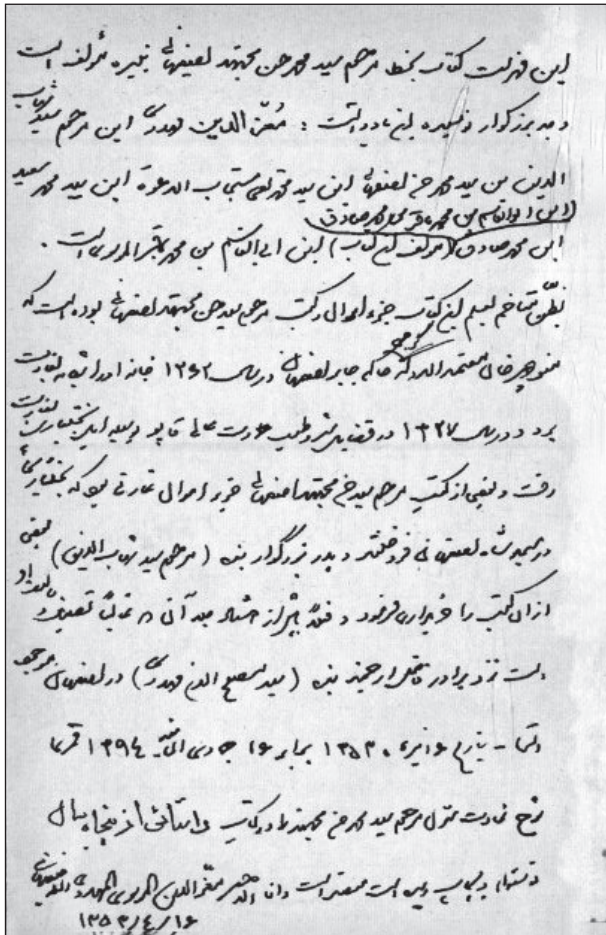 این فهرست کتاب بخط مرحوم سید محمد حسن مجتهد اصفهانی نبیره مؤلف است
و جد بزرگوار نویسنده این یادداشت : معزّالدین مهدوی ابن مرحوم سید شهاب
الدین بن سید محمد حسن اصفهانی ابن سید محمد تقی مستجاب الدعوة ابن سید محمد سعید
ابن ابوالقاسم بن محمد باقر بن محمد صادق
ابن محمد صادق (مؤلف این کتاب) ابن ابی القاسم بن محمد باقر الموسوی است .
بظنّ متاخم بعلم این کتاب جزء اموال و کتب مرحوم سید حسن مجتهد اصفهانی بوده است که
منوچهرخان معتمد الدوله گرجی حاکم جابر اصفهان در سال ۱۲۶۲ خانه او را بغارت
برد و در سال ۱۳۲۷ در قضایای مشروطیت عمارت عالی قاپو بوسیله ایل بختیاری بغارت
رفت و بعضی از کتب مرحوم سید حسن مجتهد اصفهانی جزء اموال غارتی بود که بختیاریها
در میدان شاه اصفهان می فروختند و پدر بزرگوار بنده (مرحوم سید شهاب الدین) بعضی
از آن کتب را خریداری فرمود و فعلاً بیش از هشتاد جلد آن
است نزد برادر ارجمند بنده (سید مصلح الدین مهدوی) در اصفهان موجود
بتاریخ ۱۶ تیرماه ۱۳۵۳ برابر ۱۶ جمادی الثانیه ۱۳۹۴ قمری
شرح غارت منزل مرحوم سید محمد حسن مجتهد را در کتاب داستانهائی از پنجاه سال
نوشته‌ام و بچاپ رسیده است و انا معزالدین الموسوی المهدوی الاصفهانی
۱۳۵۳/۴/۱۶